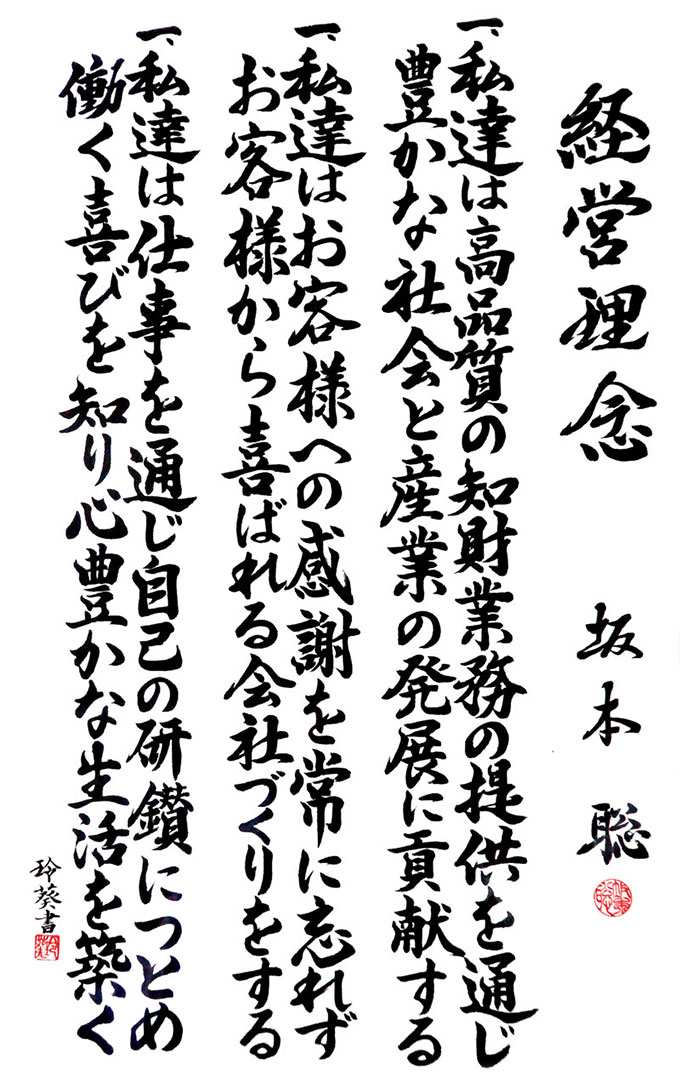 経営理念　坂本 聡
一、私達は高品質の知財業務の提供を通じ
豊かな社会と産業の発展に貢献する
一、私達はお客様への感謝を常に忘れず
お客様から喜ばれる会社づくりをする
一、私達は仕事を通じ自己の研鑚につとめ
働く喜びを知り心豊かな生活を築く
玲葵書